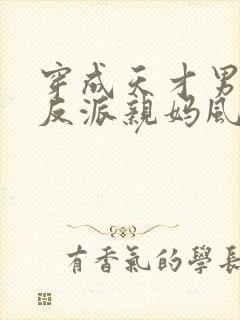 穿成天才男
反派親妈風
有香氣的學長